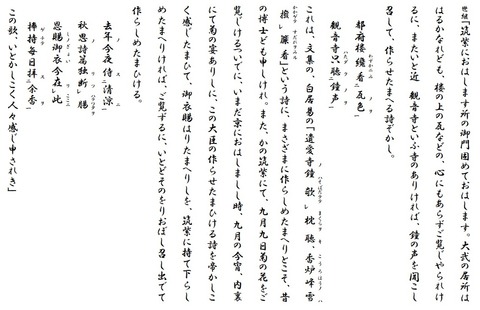 世継「筑紫におはします所の御門固めておはします。大弐の居所は
はるかなれども、楼の上の瓦などの、心にもあらずご覧じやられけ
るに、またいと近く観音寺といふ寺のありければ、鐘の声を聞こし
召して、作らせたまへる詩ぞかし。
都府楼纔看瓦色
観音寺只聴鐘声
これは、文集の、白居易の「遺愛寺鐘欹枕聴、香炉峰雪
撥簾看」という詩に、まさざまに作らしめたまへりとこそ、昔
の博士ども申しけれ。また、かの筑紫にて、九月九日菊の花をご
覧じけるついでに、いまだ京におはしましし時、九月の今宵、内裏
にて菊の宴ありしに、この大臣の作らせたまひける詩を帝かしこ
く感じたまひて、御衣賜はりたまへりしを、筑紫に持て下らし
めたまへりければ、ご覧ずるに、いとどそのをりおぼし召し出でて
作らしめたまひける。
去年今夜侍清涼
秋思詩篇独断腸
恩賜御衣今在此
捧持毎日拝余香
この歌、いとかしこく人々感じ申されき」